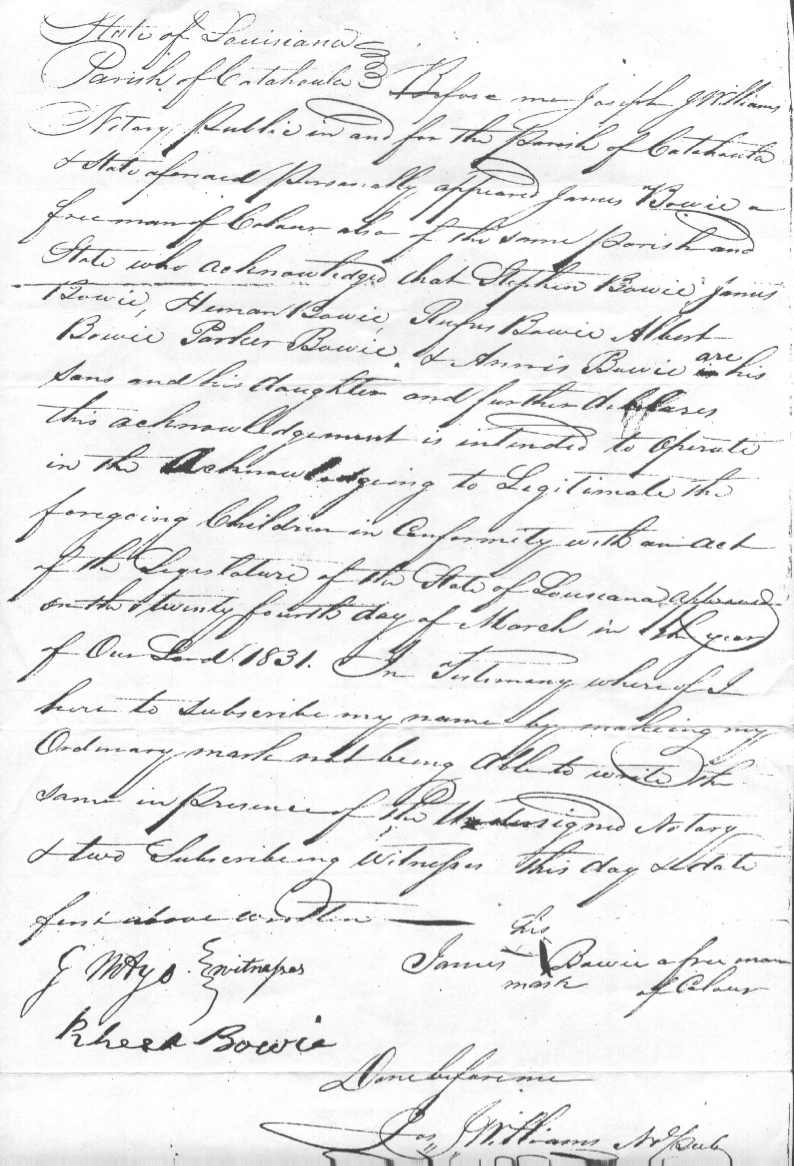 State of Louisiana
Parish of Catahoula Before me Joseph J Williams
Notary Public in and for the Parish of Catahoula
& State aforesaid Personally appeared James Bowie a
free man of Colour also of the same Parish and
State who acknowledged that Stephen Bowie, James
Bowie, Heman Bowie, Rufus Bowie Albert
Bowie Parker Bowie. & Annis Bowie are his
sons and his daughter and further declares
this acknowledgement is intended to operate
in the Acknowledgeing to Legitimate the
foregoing Children in Conformity with an act
of the Legislature of the State of Louisiana approved
on the twenty fourth day of March in the year
of Our Lord 1831. In Testimony where of I
here to subscribe my name by makeing my
Ordinary mark not being Able to write the
same in presence of the Undersigned Notary
& two Subscribeing Witnesses this day & date
first above written
his
G Mayo witnesses James X Bowie a free man
mark of Colour
Rhesa Bowie
Done before me
Jos, J Williams Not Pub